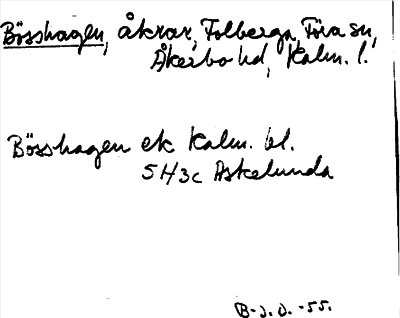 Bösshagen, åkrar, Folberga, Föra sn,
Åkerbo hd, Kalm. l.
Bösshagen ek Kalm. bl.
5H3c Askelunda
B-J.D. -55.